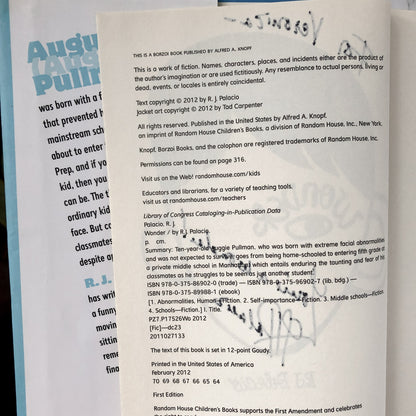 Augu
(Augu
Pullm
was born with a f
that prevented h
mainstream scho
about to enter
Prep, and if yo
kid, then you
can be. The t
ordinary kid
face. But co
classmates
despite ap
R. J.
has writ
a funny
movin
sittin
reme
fina
Veronica —
THIS IS A BORZOI BOOK PUBLISHED BY ALFRED A. KNOPF
This is a work of fiction. Names, characters, places, and incidents either are the product of
the author's imagination or are used fictitiously. Any resemblance to actual persons, living or
dead, events, or locales is entirely coincidental.
Text copyright © 2012 by R. J. Palacio
Jacket art copyright © 2012 by Tad Carpenter
All rights reserved. Published in the United States by Alfred A. Knopf,
an imprint of Random House Children's Books, a division of Random House, Inc., New York.
Knopf, Borzoi Books, and the colophon are registered trademarks of Random House, Inc.
Permissions can be found on page 316.
Visit us on the Web! randomhouse.com/kids
Educators and librarians, for a variety of teaching tools,
visit us at randomhouse.com/teachers
Library of Congress Cataloging-in-Publication Data
Palacio, R. J.
Wonder / by R.J. Palacio.
p. cm.
Summary: Ten-year-old Auggie Pullman, who was born with extreme facial abnormalities
and was not expected to survive, goes from being home-schooled to entering fifth grade at
a private middle school in Manhattan, which entails enduring the taunting and fear of his
classmates as he struggles to be seen as just another student.
ISBN 978-0-375-86902-0 (trade) — ISBN 978-0-375-96902-7 (lib. bdg.) —
ISBN 978-0-375-89988-1 (ebook)
[1. Abnormalities, Human—Fiction. 2. Self-importance—Fiction. 3. Middle schools—Fiction
4. Schools—Fiction.] I. Title.
PZ7.P17526Wo 2012
[Fic]—dc23
2011027133
The text of this book is set in 12-point Goudy.
Printed in the United States of America
February 2012
70 69 68 67 66 65 64
First Edition
Random House Children's Books supports the First Amendment and celebrates